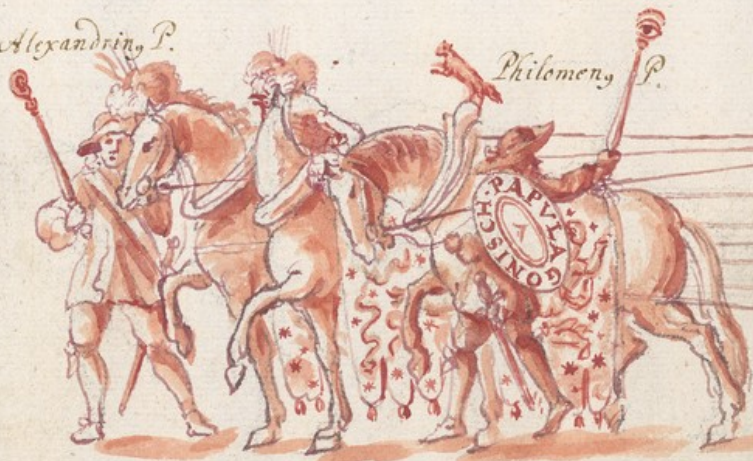 Alexandrinꝰ P.
Philomenꝰ P.
PAPVLAGONISSCH.
7